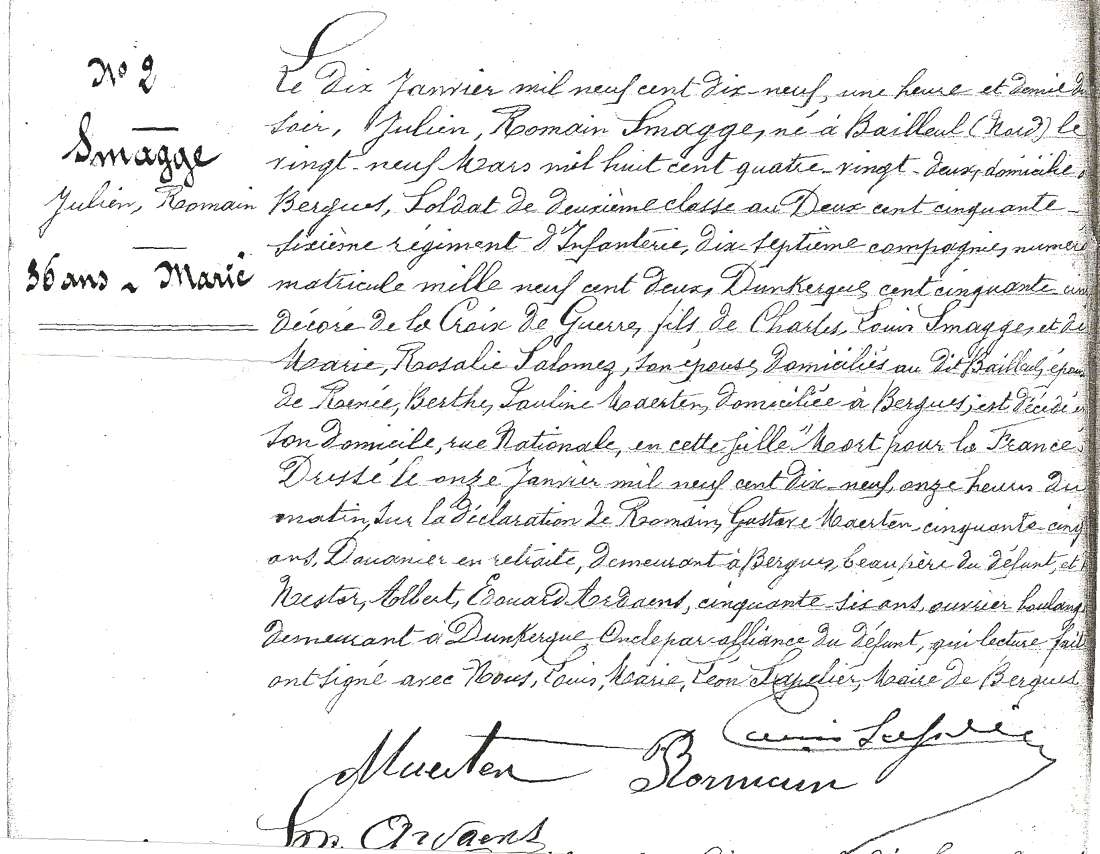 N° 2
Smagge
Julien, Romain
36 ans ~ Marié
Le dix Janvier mil neuf cent dix-neuf, une heure et demie du
soir, Julien, Romain Smagge, né à Bailleul (Nord) le
vingt-neuf Mars mil huit cent quatre-vingt-deux, domicilié à
Bergues, Soldat de deuxième classe au Deux cent cinquante-
sixième régiment d'Infanterie, dix septième compagnie, numéro
matricule mille neuf cent deux, Dunkerque, cent cinquante-
décoré de la Croix de Guerre, fils de Charles, Louis Smagge, et de
Marie, Rosalie Salomez, son épouse, domiciliés au dit Bailleul, époux
de Renée, Berthe, Pauline Maerten, domiciliée à Bergues, est décédé en
son domicile, rue Nationale, en cette ville "Mort pour la France"
Dressé le onze Janvier mil neuf cent dix-neuf, onze heures du
matin, sur la déclaration de Romain, Gustave Maerten cinquante-cinq
ans, Douanier en retraite, demeurant à Bergues, beau père du défunt, et
Nestor, Albert, Edouard Ardaens, cinquante-six ans, ouvrier boulang
demeurant à Dunkerque Oncle par alliance du défunt, qui lecture faite
ont signé avec Nous, Louis, Marie, Léon Maire de Bergues
Maerten Romain Louis
Ardaens